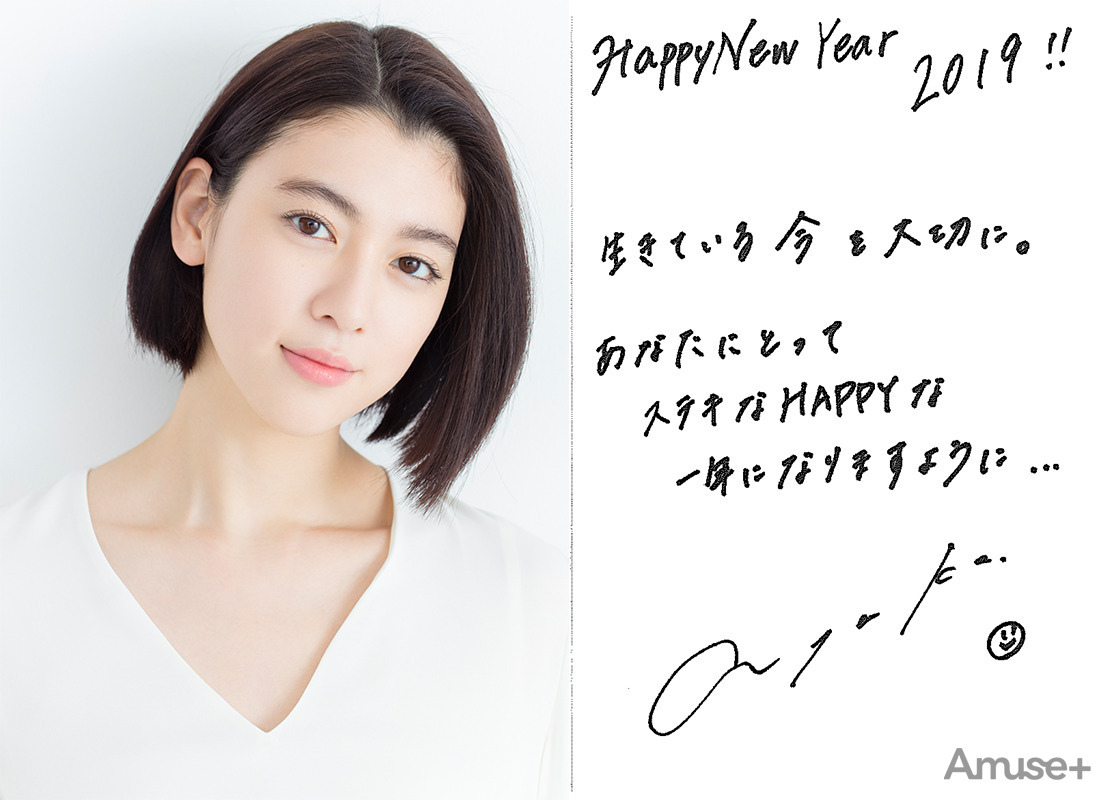 Happy New Year 2019!!
生きている今を大切に。
あなたにとって
ステキなHAPPYな
一年になりますように...
Amuse+